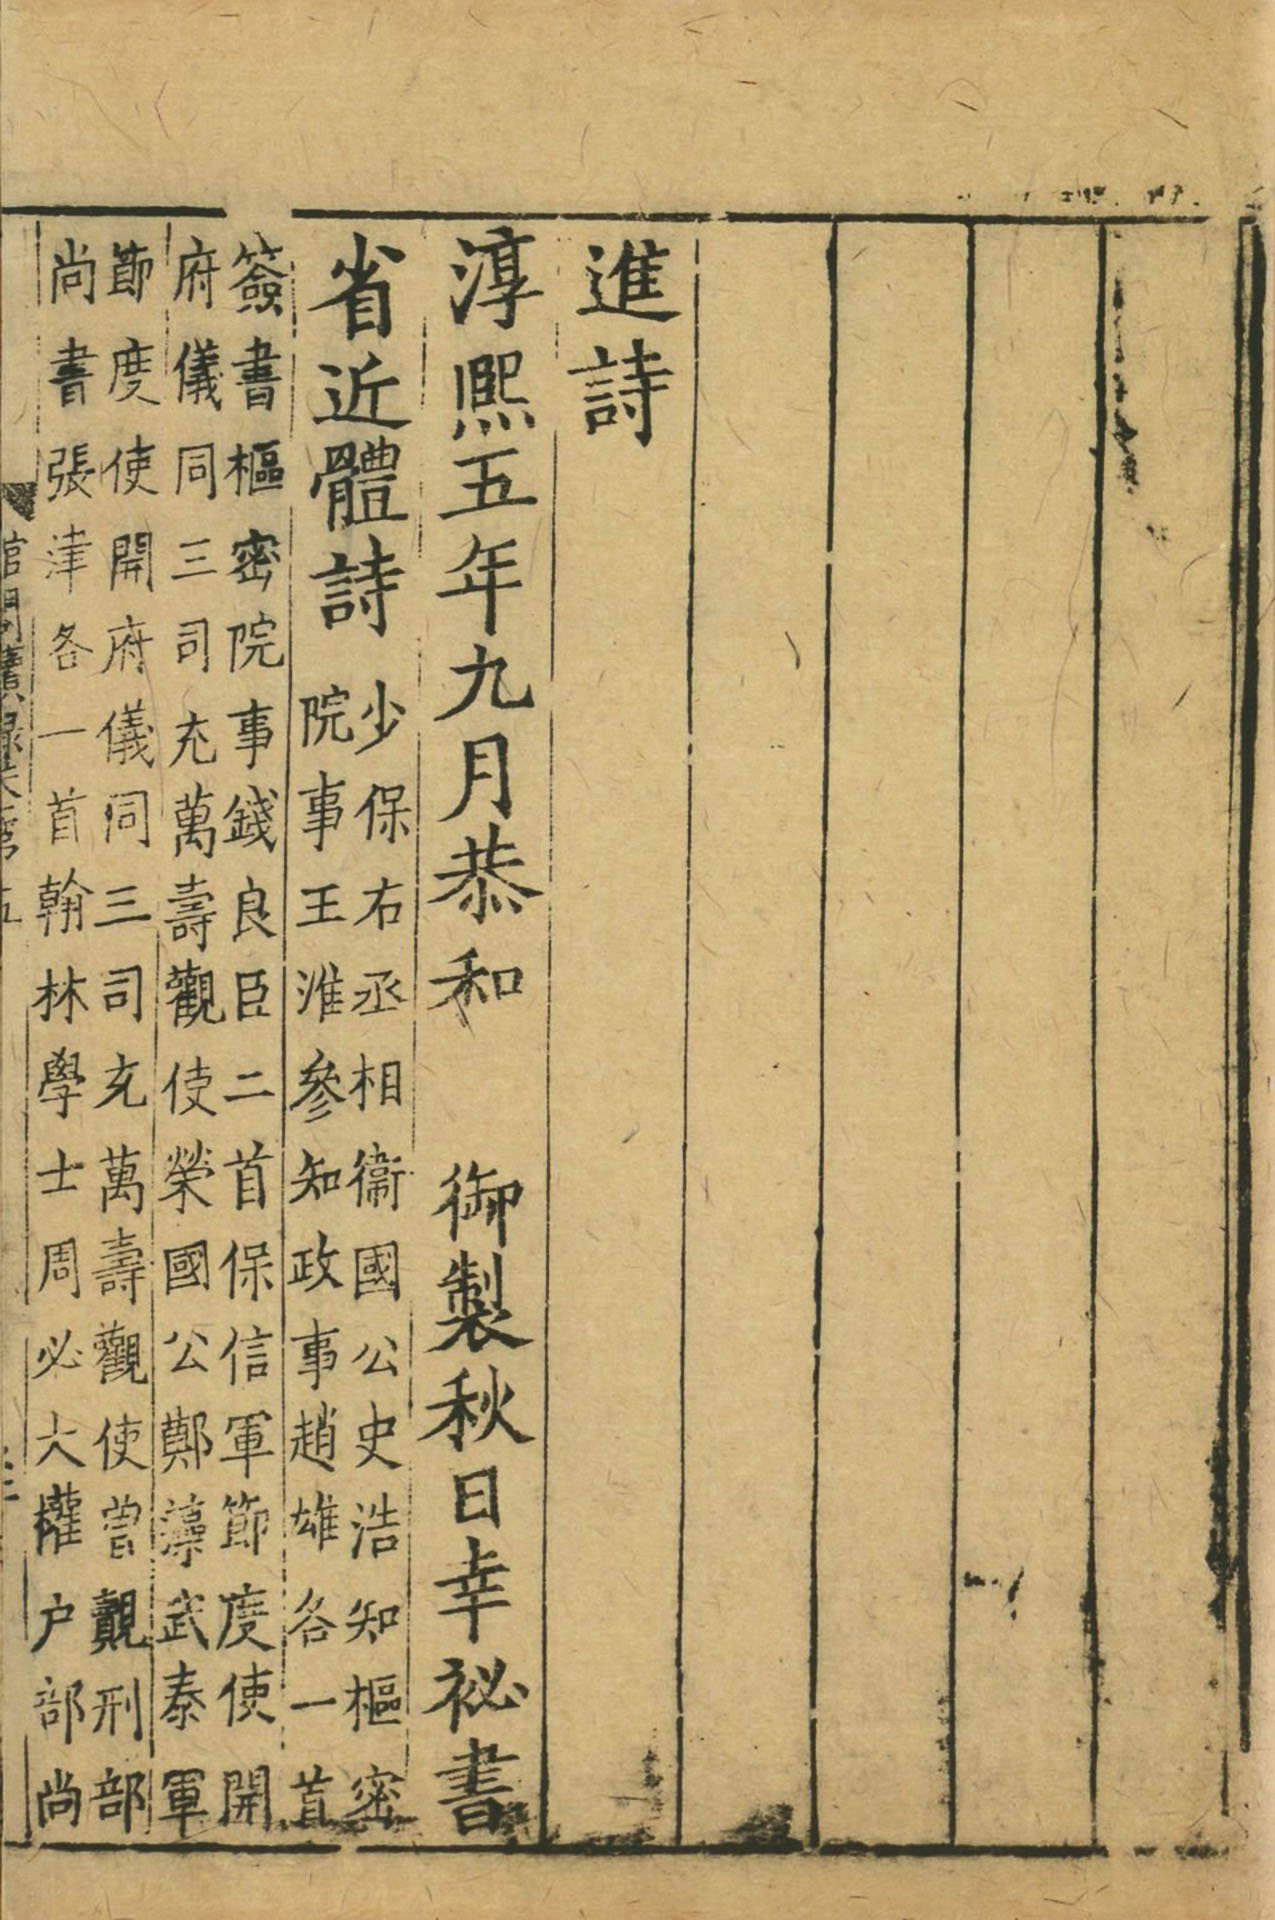 進詩
淳熙五年九月恭和　御製秋日幸祕書
省近體詩
少保右丞相衞國公史浩知樞密
院事王淮參知政事趙雄各一首
簽書樞密院事錢良臣二首保信軍節度使開
府儀同三司充萬壽觀使榮國公鄭藻武泰軍
節度使開府儀同三司充萬壽觀使曾覿刑部
尚書張津各一首翰林學士周必大權户部尚